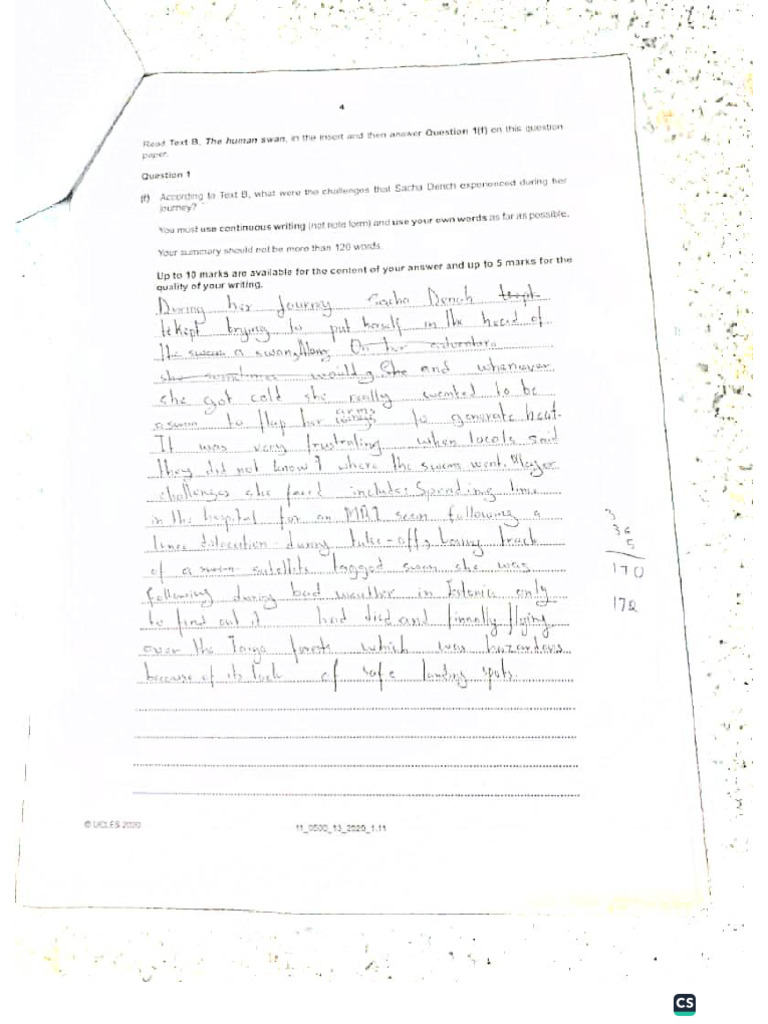 4
Read Text B, The human swan, in the insert and then answer Question 1(f) on this question
paper.
Question 1
(f) According to Text B, what were the challenges that Sacha Dench experienced during her
journey?
You must use continuous writing (not note form) and use your own words as far as possible.
Your summary should not be more than 120 words.
Up to 10 marks are available for the content of your answer and up to 5 marks for the
quality of your writing.
During her journey Sacha Dench
kept trying to put herself in the head of
the swan a swan, Along On her adventure
she sometimes would She and whenever
she got cold she really wanted to be
a swan to flap her arms wings to generate heat.
It was very frustrating when locals said
they did not know where the swans went. Major
challenges she faced includes Spending time
in the hospital for an MRI scan following a
knee dislocation during take-off, losing track
of a swan satellite tagged swan she was
following during bad weather in Estonia only
to find out it had died and finnally flying
over the Taiga forests which was hazardous
because of its lack of safe landing spots.
3
36
5
170
172
© UCLES 2020
11_0500_13_2020_1.11
CS